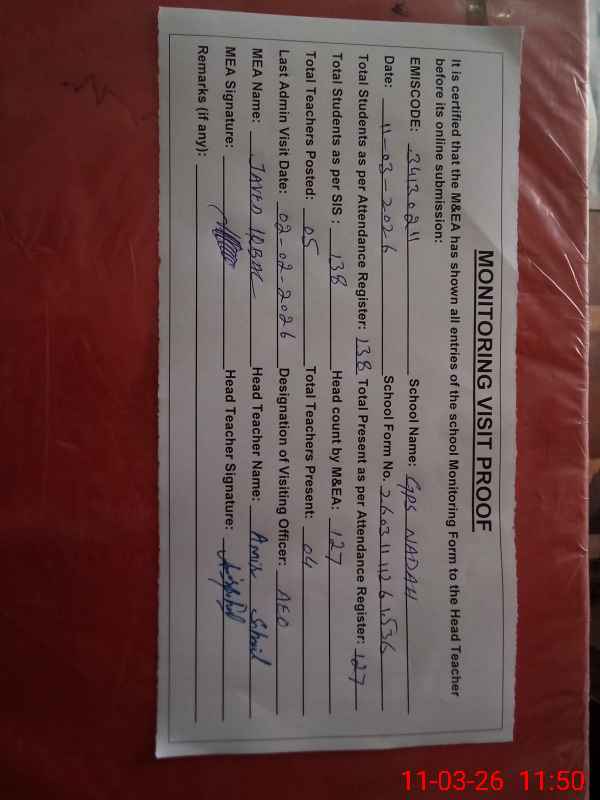 MONITORING VISIT PROOF
It is certified that the M&EA has shown all entries of the school Monitoring Form to the Head Teacher
before its online submission:
EMISCODE: 34130211 School Name: GPS NADAH
Date: 11-03-2026 School Form No. 26031111261536
Total Students as per Attendance Register: 138 Total Present as per Attendance Register: 127
Total Students as per SIS : 138 Head count by M&EA: 127
Total Teachers Posted: 05 Total Teachers Present: 04
Last Admin Visit Date: 02-02-2026 Designation of Visiting Officer: AEO
MEA Name: JAVED IQBAL Head Teacher Name: Amir Sohail
MEA Signature: Head Teacher Signature:
Remarks (if any):
11-03-26 11:50